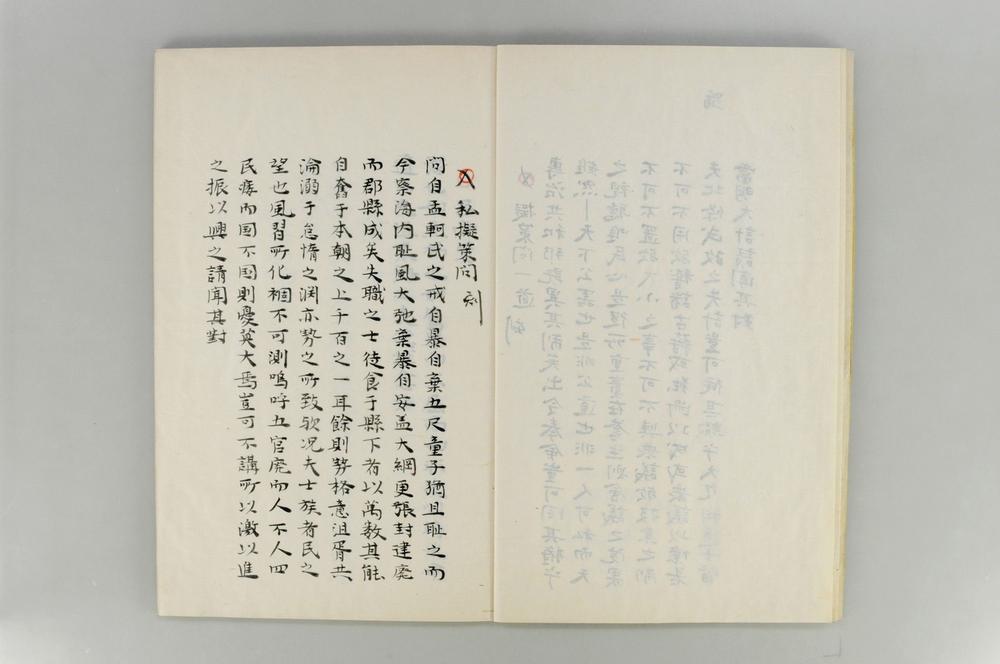 私擬策問 刻
問自孟軻氏之戒自暴自棄五尺童子猶且恥之而
今察海內恥風大弛棄暴自安蓋大綱更張封建廃
而郡縣成矣失職之士徒食于縣下者以萬数其能
自奮于本朝之上千百之一耳餘則勢格意沮胥共
淪溺于怠惰之淵亦勢之所致欤況夫士族者民之
望也風習所化禍不可測嗚呼五官廃而人不人四
民癈而国不国則憂莫大焉豈可不講所以激以進
之振以興之請聞其對